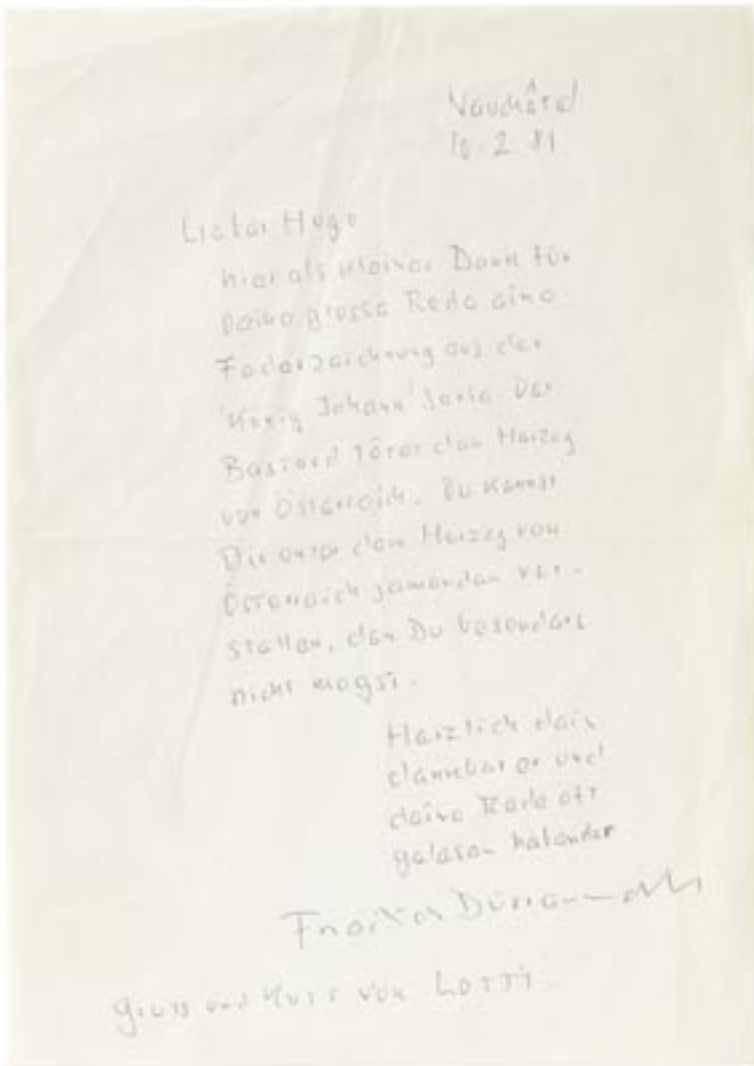 Neuchâtel
10. 2. 81
Lieber Hugo
hier als kleiner Dank für
Deine grosse Rede eine
Federzeichnung aus der
'König Johann' Serie Der
Bastard tötet den Herzog
von Österreich. Du kannst
Dir unter dem Herzog von
Österreich jemanden vor-
stellen, den Du besonders
nicht magst.
Herzlich dein
dankbarer und
deine Rede oft
gelesen habender
Friedrich Dürrenmatt
Gruss und Kuss von Lotti